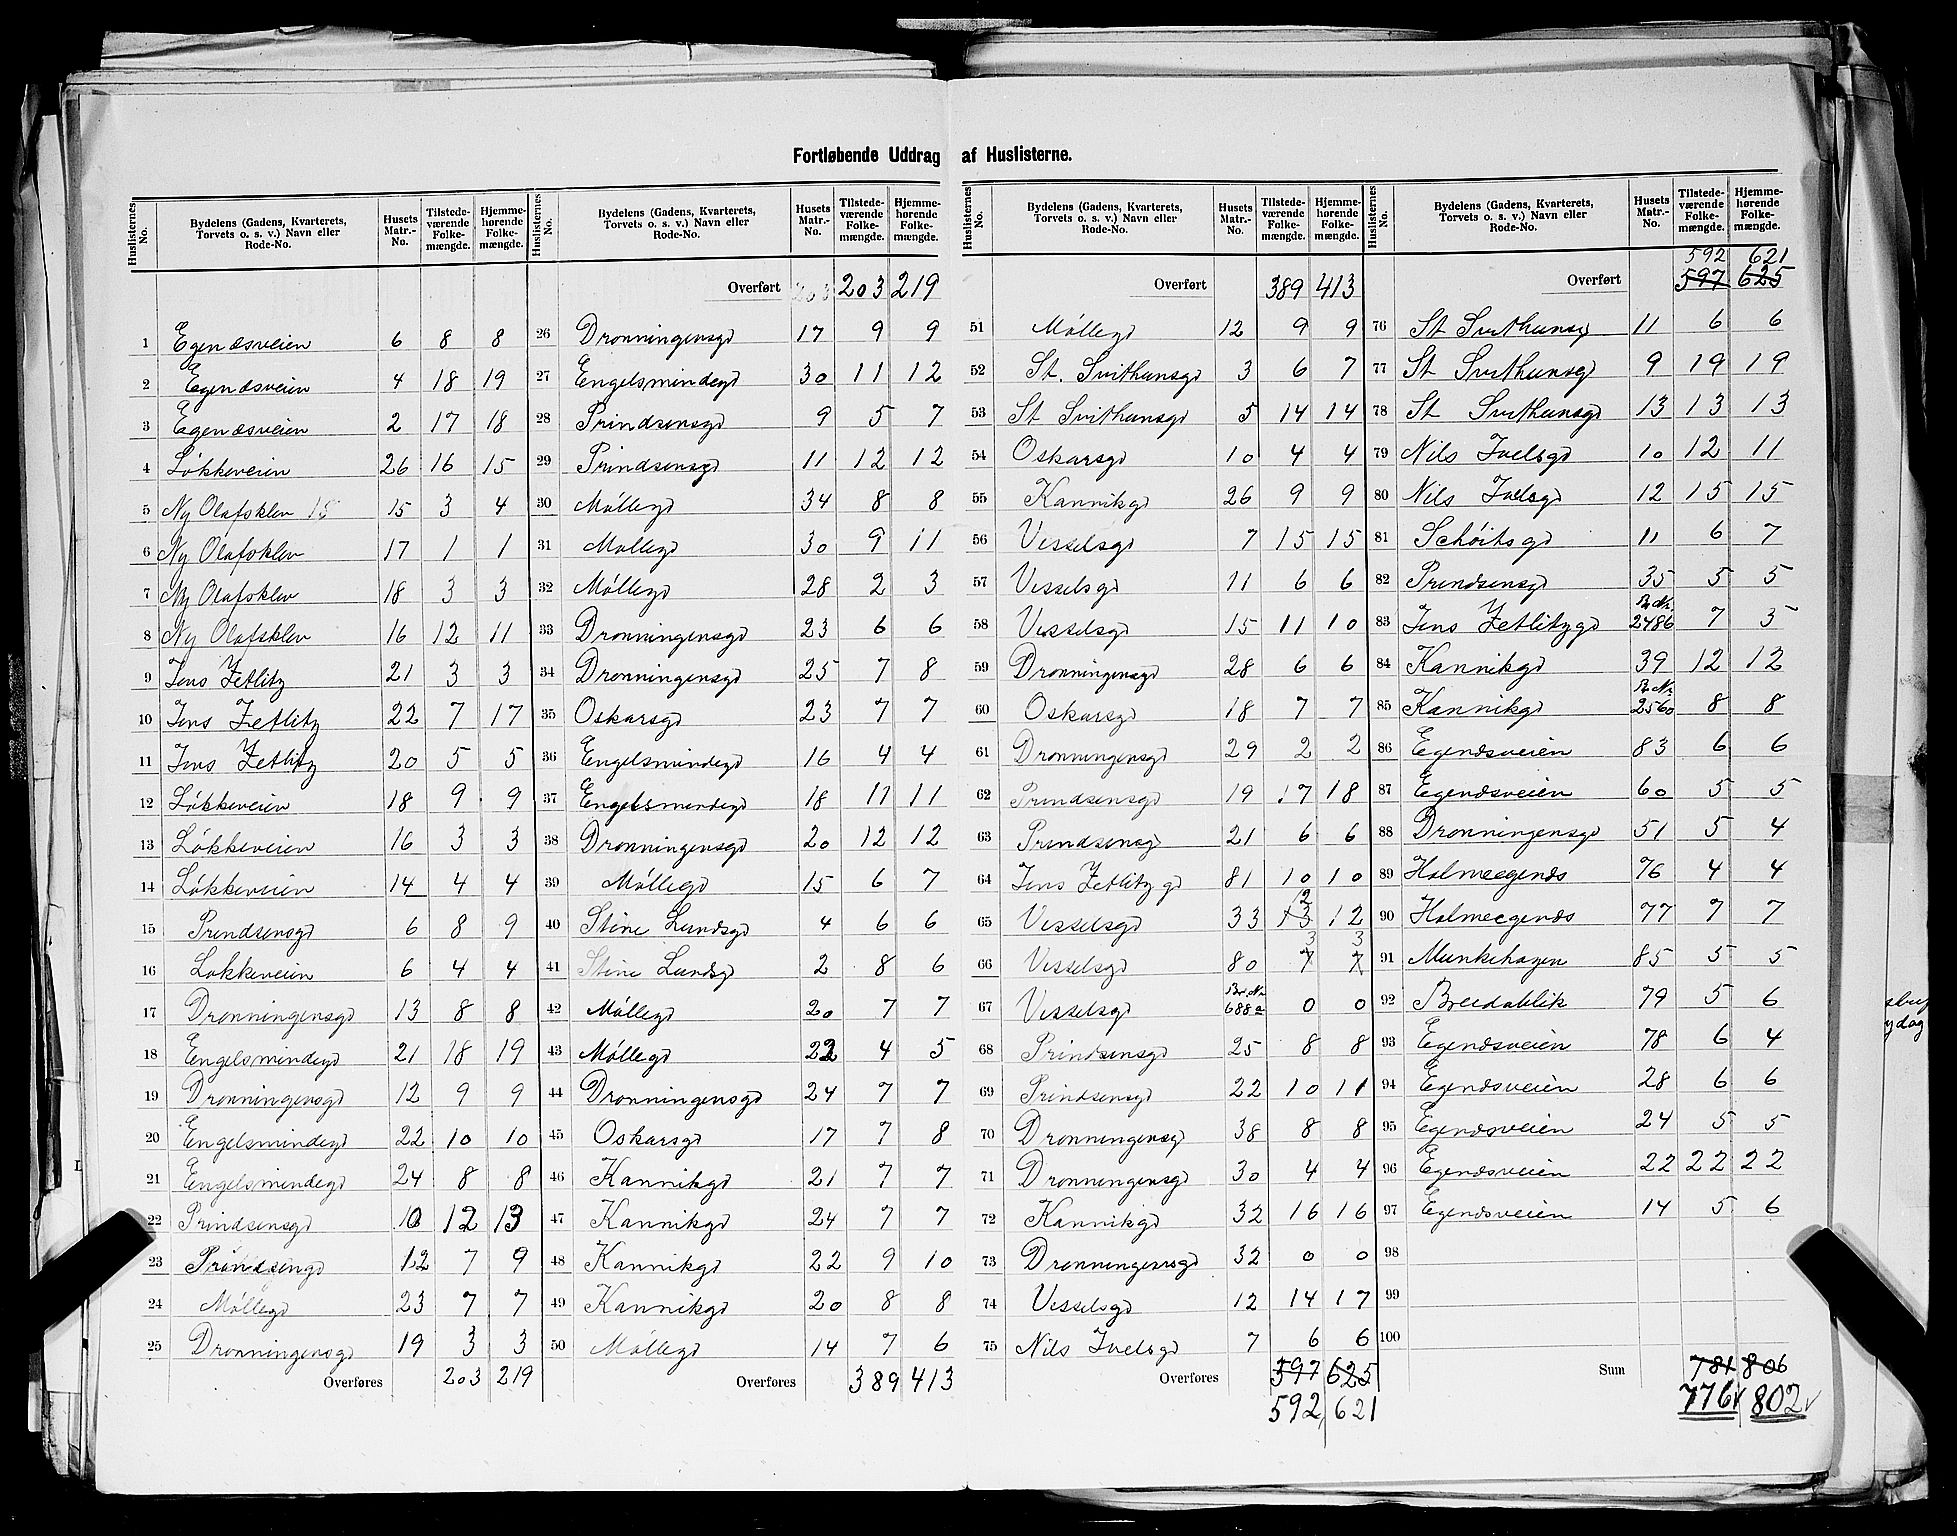 Fortløbende Uddrag af Huslisterne.
Huslisternes No. Bydelens (Gadens, Kvarterets, Torvets o. s. v.) Navn eller Rode-No. Husets Matr.-No. Tilstedeværende Folkemængde. Hjemmehørende Folkemængde.
1 Egenæsveien 6 8 8
2 Egenæsveien 4 18 19
3 Egenæsveien 2 17 18
4 Løkkeveien 26 16 15
5 Ny Olafsklev 15 15 3 4
6 Ny Olafsklev 17 1 1
7 Ny Olafsklev 18 3 3
8 Ny Olafsklev 16 12 11
9 Jens Zetlitz 21 3 3
10 Jens Zetlitz 22 7 17
11 Jens Zetlitz 20 5 5
12 Løkkeveien 18 9 9
13 Løkkeveien 16 3 3
14 Løkkeveien 14 4 4
15 Prindsensgd 6 8 9
16 Løkkeveien 6 4 4
17 Dronningensgd 13 8 8
18 Engelsmindegd 21 18 19
19 Dronningensgd 12 9 9
20 Engelsmindegd 22 10 10
21 Engelsmindegd 24 8 8
22 Prindsensgd 10 12 13
23 Prindsensgd 12 7 9
24 Møllegd 23 7 7
25 Dronningensgd 19 3 3
Overføres 203 219
Huslisternes No. Bydelens (Gadens, Kvarterets, Torvets o. s. v.) Navn eller Rode-No. Husets Matr.-No. Tilstedeværende Folkemængde. Hjemmehørende Folkemængde.
Overført 203 203 219
26 Dronningensgd 17 9 9
27 Engelsmindegd 30 11 12
28 Prindsensgd 9 5 7
29 Prindsensgd 11 12 12
30 Møllegd 34 8 8
31 Møllegd 30 9 11
32 Møllegd 28 2 3
33 Dronningensgd 23 6 6
34 Dronningensgd 25 7 8
35 Oskarsgd 23 7 7
36 Engelsmindegd 16 4 4
37 Engelsmindegd 18 11 11
38 Dronningensgd 20 12 12
39 Møllegd 15 6 7
40 Stine Lundsgd 4 6 6
41 Stine Lundsgd 2 8 6
42 Møllegd 20 7 7
43 Møllegd 22 4 5
44 Dronningensgd 24 7 7
45 Oskarsgd 17 7 8
46 Kannikgd 21 7 7
47 Kannikgd 24 7 7
48 Kannikgd 22 9 10
49 Kannikgd 20 8 8
50 Møllegd 14 7 6
Overføres 389 413
Huslisternes No. Bydelens (Gadens, Kvarterets, Torvets o. s. v.) Navn eller Rode-No. Husets Matr.-No. Tilstedeværende Folkemængde. Hjemmehørende Folkemængde.
Overført 389 413
51 Møllegd 12 9 9
52 St. Svithunsgd 3 6 7
53 St Svithunsgd 5 14 14
54 Oskarsgd 10 4 4
55 Kannikgd 26 9 9
56 Vesselsgd 7 15 15
57 Vesselsgd 11 6 6
58 Vesselsgd 15 11 10
59 Dronningensgd 28 6 6
60 Oskarsgd 18 7 7
61 Dronningensgd 29 2 2
62 Prindsensgd 19 17 18
63 Prindsensg 21 6 6
64 Jens Zetlitz gd 81 10 10
65 Vesselsgd 33 13 2 12
66 Vesselsgd 80 7 3 7 3
67 Vesselsgd Br Nr 688a 0 0
68 Prindsensgd 25 8 8
69 Prindsensgd 22 10 11
70 Dronningensg 38 8 8
71 Dronningensgd 30 4 4
72 Kannikgd 32 16 16
73 Dronningensgd 32 0 0
74 Vesselsgd 12 14 17
75 Nils Juelsgd 7 6 6
Overføres 597 625
592 621
Huslisternes No. Bydelens (Gadens, Kvarterets, Torvets o. s. v.) Navn eller Rode-No. Husets Matr.-No. Tilstedeværende Folkemængde. Hjemmehørende Folkemængde.
592 621
Overført 597 625
76 St Svithunsg 11 6 6
77 St Svithunsgd 9 19 19
78 St Svithunsgd 13 13 13
79 Nils Juelsgd 10 12 11
80 Nils Juelsgd 12 15 15
81 Schøitsgd 11 6 7
82 Prindsensgd 35 5 5
83 Jens Zetlitzgd Br Nr 2486 7 3
84 Kannikgd 39 12 12
85 Kannikgd Br Nr 2560 8 8
86 Egenæsveien 83 6 6
87 Egenæsveien 60 5 5
88 Dronningensgd 51 5 4
89 Holmeegenæs 76 4 4
90 Holmeegenæs 77 7 7
91 Munkehagen 85 5 5
92 Breidablik 79 5 6
93 Egenæsveien 78 6 4
94 Egenæsveien 28 6 6
95 Egenæsveien 24 5 5
96 Egenæsveien 22 22 22
97 Egenæsveien 14 5 6
98
99
100
Sum 781 806
776 802